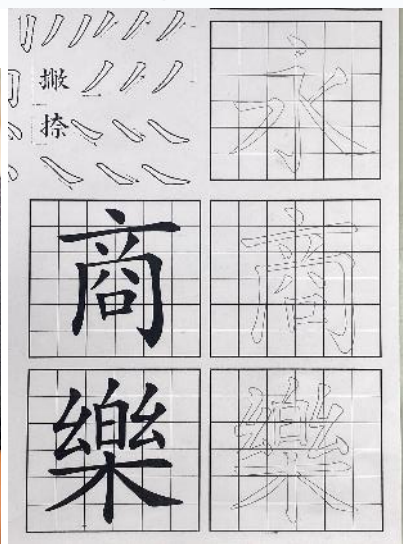 撇
捺
永
商 商
樂 樂